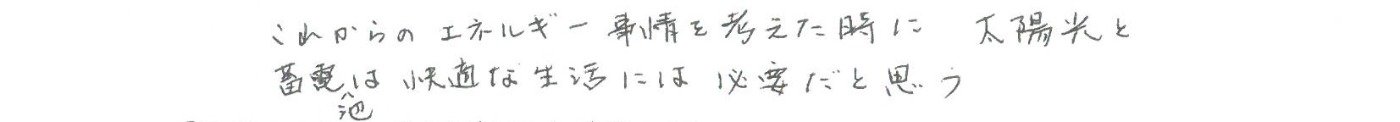 これからのエネルギー事情を考えた時に 太陽光と
蓄電池は快適な生活には必要だと思う